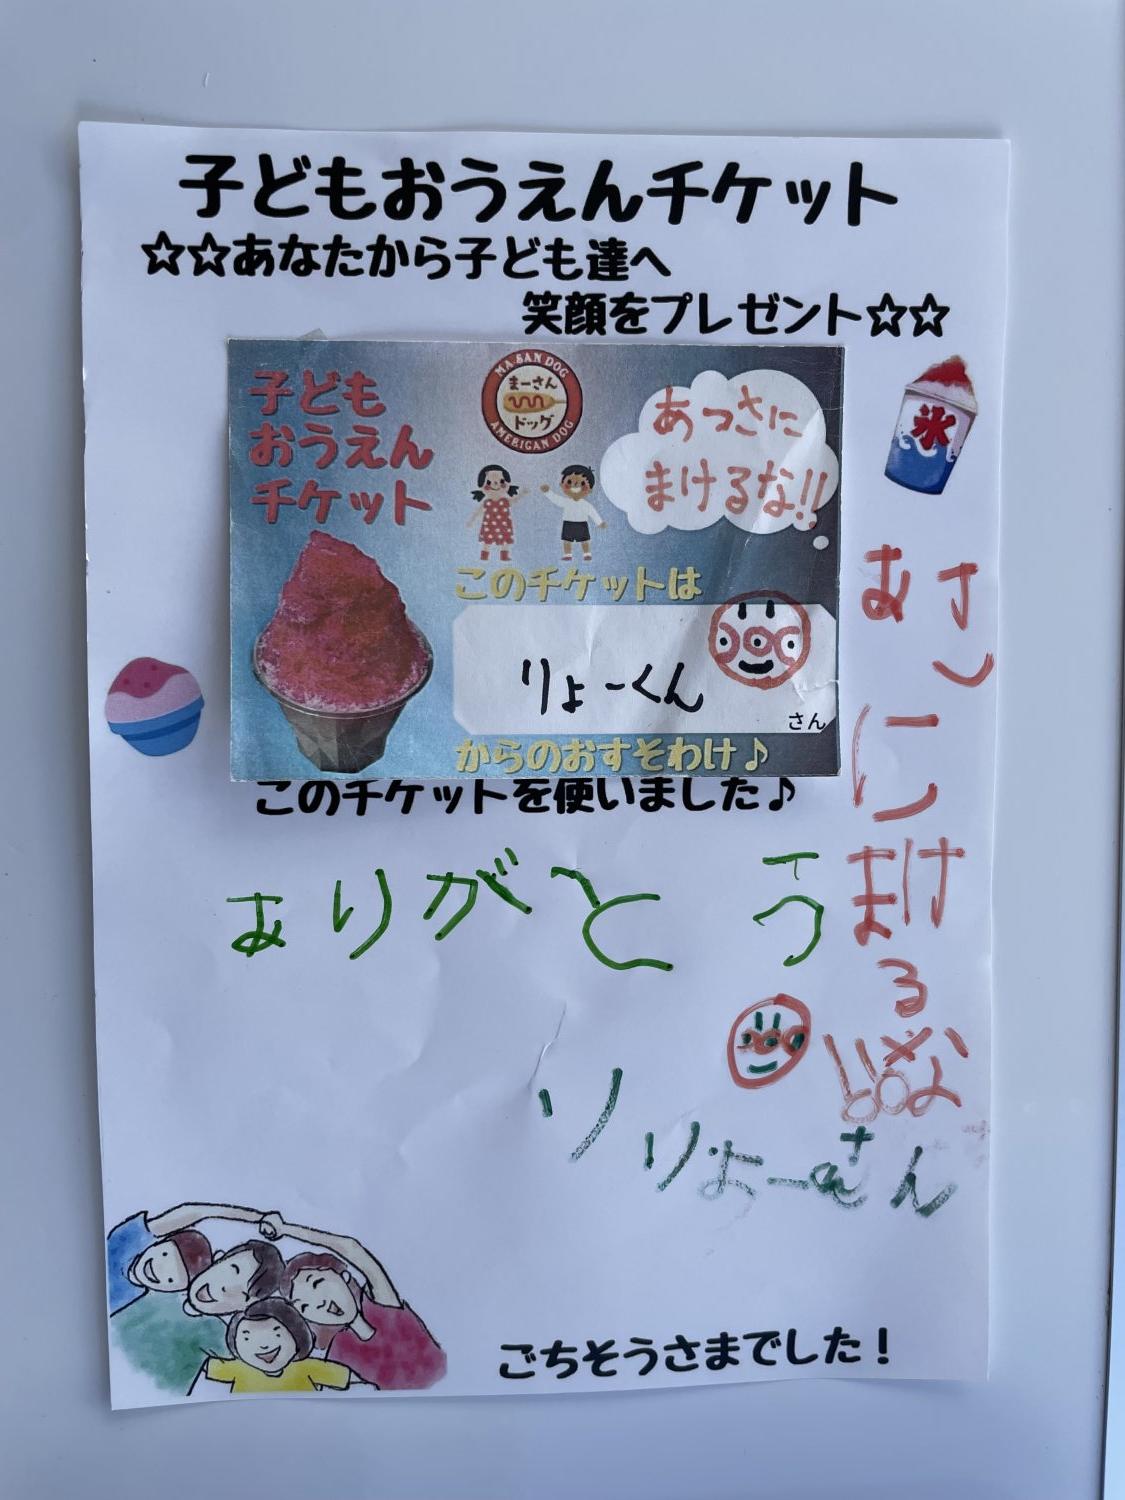 子どもおうえんチケット
☆☆あなたから子ども達へ
笑顔をプレゼント☆☆
子ども
おうえん
チケット
MA-SAN DOG
まーさん
ドッグ
AMERICAN DOG
あっさに
まけるな!!
このチケットは
りょーくん
さん
からのおすそわけ♪
氷
このチケットを使いました♪
ありがとう
に
まけ
るな
りょーさん
ごちそうさまでした！